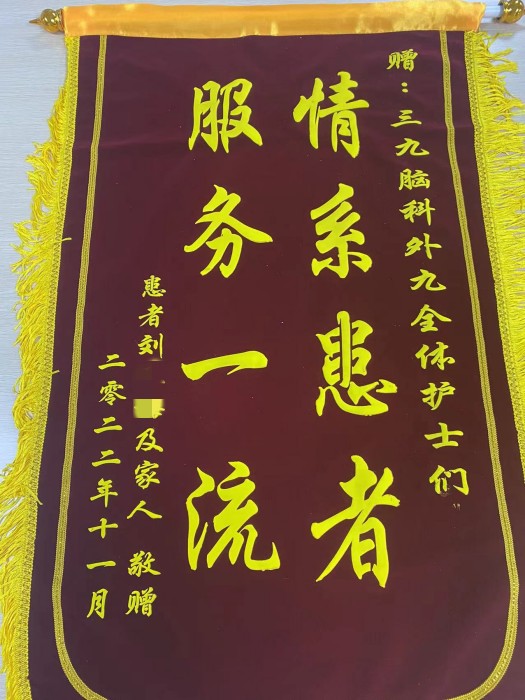 赠：三九脑科外九全体护士们
情系患者
服务一流
患者刘
及家人 敬赠
二零二二年十一月